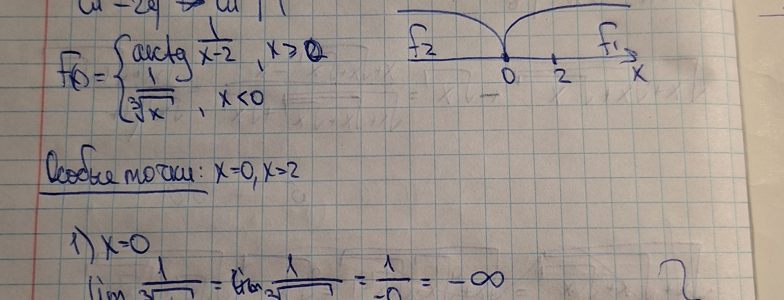 f(x) = { arctg 1/(x-2) , x ≥ 0
1/∛x , x < 0
f₂ f₁
0 2 x
Особые точки: x=0, x=2
1) x=0
lim 1/∛ = lim 1/∛ = 1/-0 = -∞